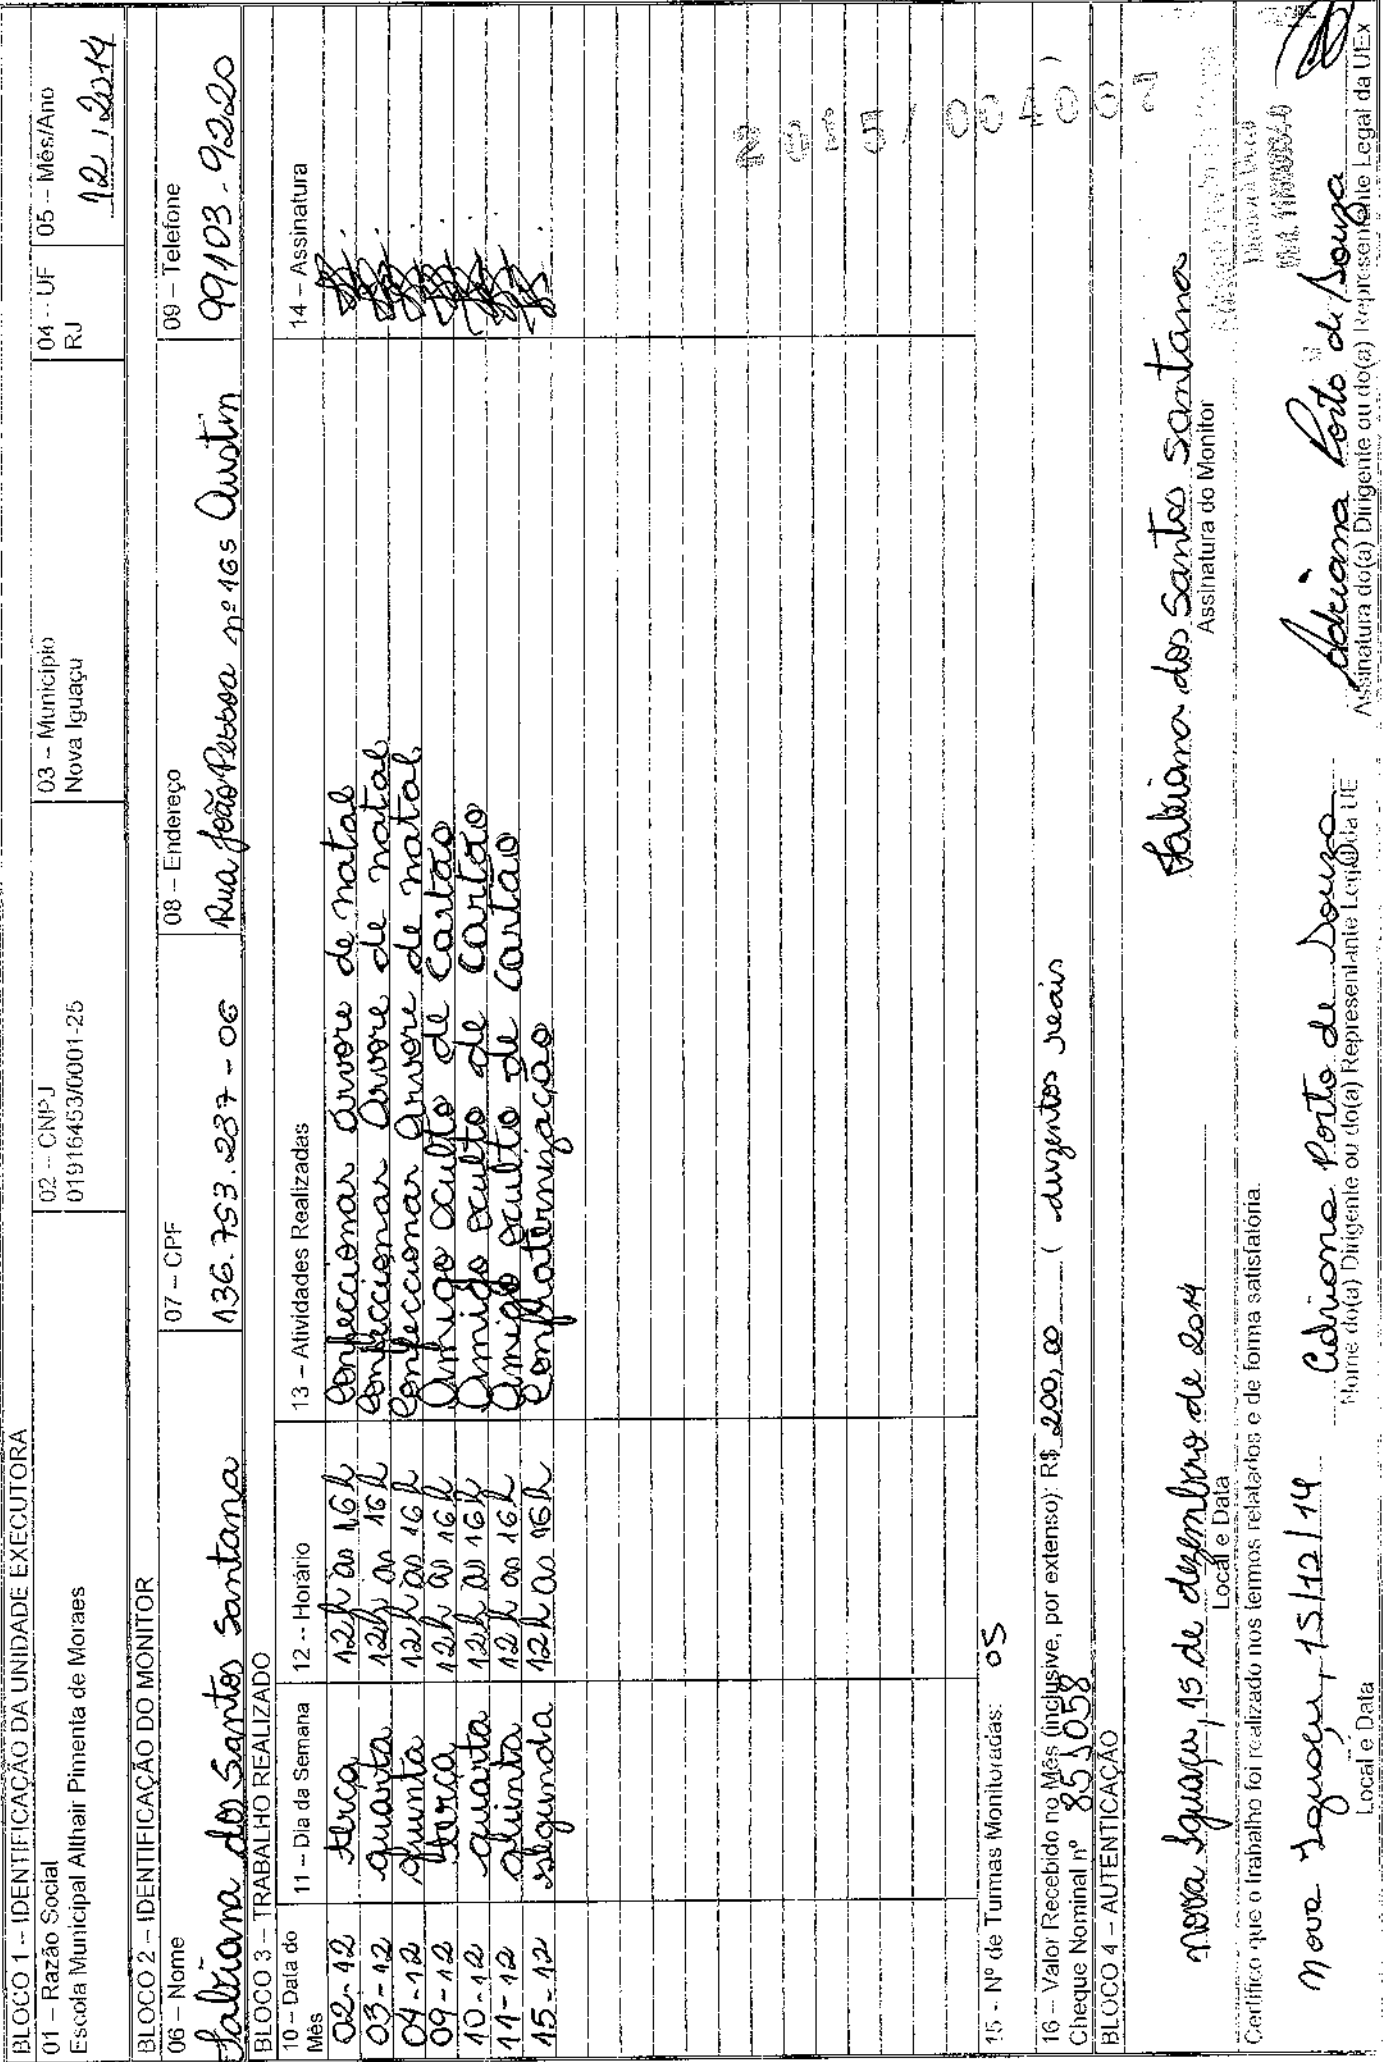 BLOCO 1 – IDENTIFICAÇÃO DA UNIDADE EXECUTORA
01 – Razão Social
Escola Municipal Althair Pimenta de Moraes
02 – CNPJ
01916453/0001-25
03 – Município
Nova Iguaçu
04 – UF
RJ
05 – Mês/Ano
12 / 2014
BLOCO 2 – IDENTIFICAÇÃO DO MONITOR
06 – Nome
Fabiana dos Santos Santana
07 – CPF
136.753.237-06
08 – Endereço
Rua João Pessoa nº 165 Austin
09 – Telefone
99103-9220
BLOCO 3 – TRABALHO REALIZADO
10 – Data do Mês 11 – Dia da Semana 12 – Horário 13 – Atividades Realizadas 14 – Assinatura
02-12 terça 12h as 16h Confeccionar árvore de natal
03-12 quarta 12h as 16h Confeccionar árvore de natal
04-12 quinta 12h as 16h Confeccionar árvore de natal
09-12 terça 12h as 16h Amigo oculto de cartão
10-12 quarta 12h as 16h Amigo oculto de cartão
11-12 quinta 12h as 16h Amigo oculto de cartão
15-12 segunda 12h as 16h Confraternização
15 - Nº de Turmas Monitoradas: 05
16 – Valor Recebido no Mês (inclusive, por extenso): R$ 200,00 ( duzentos reais )
Cheque Nominal nº 851058
BLOCO 4 – AUTENTICAÇÃO
Nova Iguaçu, 15 de dezembro de 2014
Local e Data
Fabiana dos Santos Santana
Assinatura do Monitor
Certifico que o trabalho foi realizado nos termos relatados e de forma satisfatória.
Nova Iguaçu, 15/12/14
Local e Data
Adriana Porto de Souza
Nome do(a) Dirigente ou do(a) Representante Legal da UE
Adriana Porto de Souza
Assinatura do(a) Dirigente ou do(a) Representante Legal da UEx